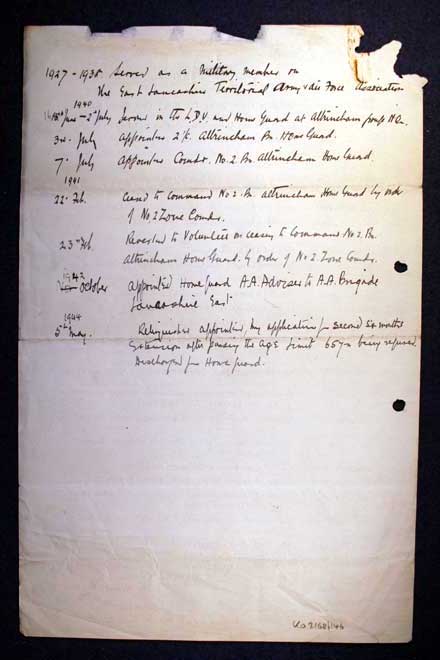 1927 - 1938 Served as a Military member on
the East Lancashire Territorial Army & Air Force Association
1940
18th June - 2nd July Served in the L.D.V. and Home Guard at Altrincham Group H.Q.
3rd July Appointed 2 i/c. Altrincham Bn Home Guard.
7th July Appointed Comdr. No. 2 Bn. Altrincham Home Guard.
1941
22nd Feb. Ceased to Command No 2 Bn Altrincham Home Guard by order
of No 2 Zone Comdr.
23rd Feb. Reverted to Volunteer on ceasing to Command No 2 Bn.
Altrincham Home Guard. by order of No 2 Zone Comdr.
1942
October appointed Home Guard A.A. Adviser to A.A. Brigade
Lancashire East
1944
5th May. Relinquished appointment, my application for second six months
extension after passing the age limit 65 yrs being refused.
Discharged from Home Guard.